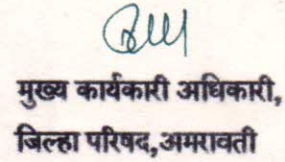 मुख्य कार्यकारी अधिकारी,
जिल्हा परिषद,अमरावती